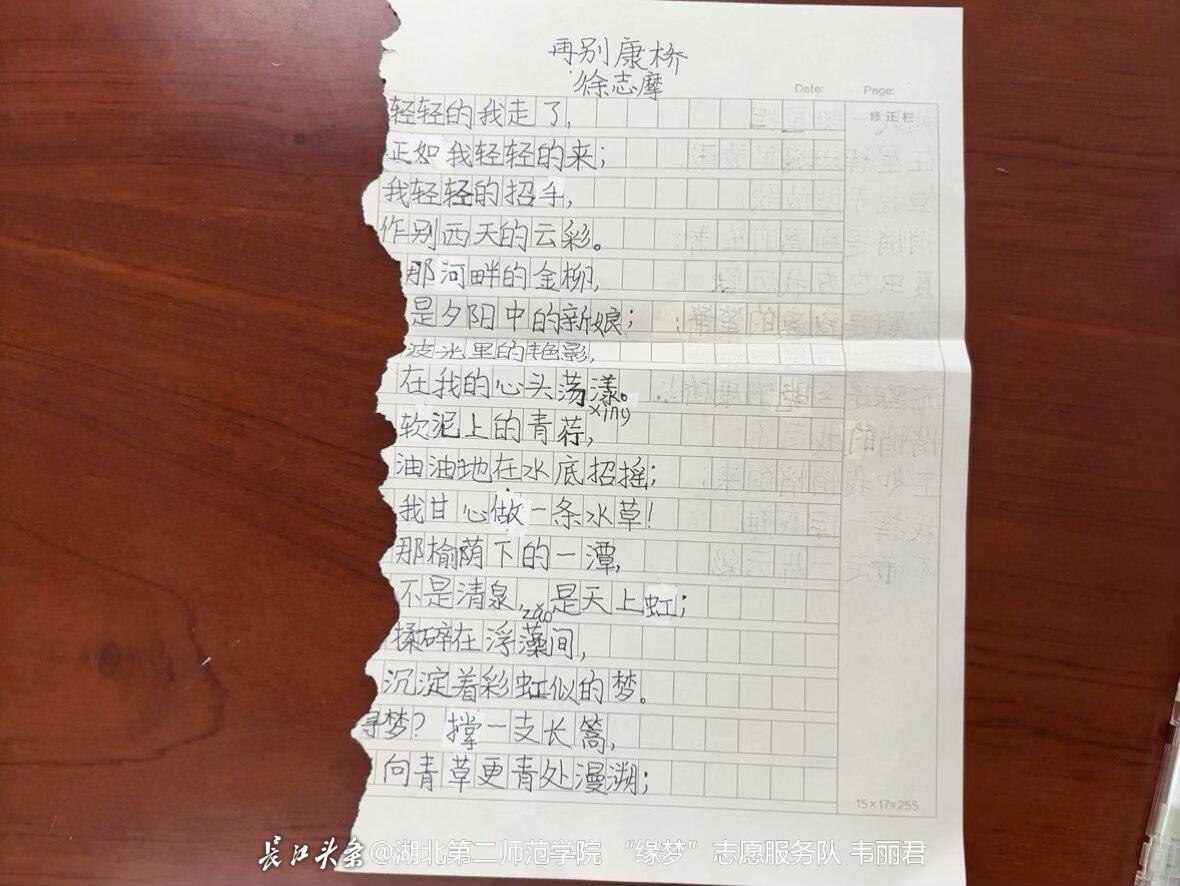 再别康桥
徐志摩
Date: Page:
修正栏
轻轻的我走了,
正如我轻轻的来;
我轻轻的招手,
作别西天的云彩。
那河畔的金柳,
是夕阳中的新娘;
波光里的艳影,
在我的心头荡漾。
xing
软泥上的青荇,
油油地在水底招摇;
我甘心做一条水草!
那榆荫下的一潭,
不是清泉,是天上虹;
zǎo
揉碎在浮藻间,
沉淀着彩虹似的梦。
寻梦?撑一支长篙,
向青草更青处漫溯;
15×17=255
长江头条@湖北第二师范学院 “缘梦”志愿服务队 韦丽君